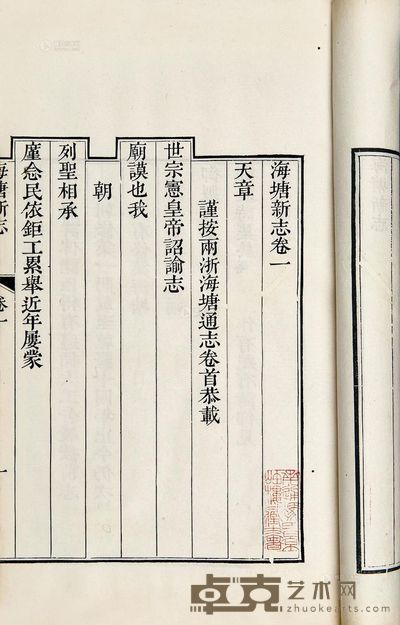 海塘新志卷一
天章
謹按兩浙海塘通志卷首恭載
世宗憲皇帝詔諭志
廟謨也我
朝
列聖相承
廑念民依鉅工累舉近年屡蒙
海塘新志
卷一
一
卓克艺术网
zhuokearts.com